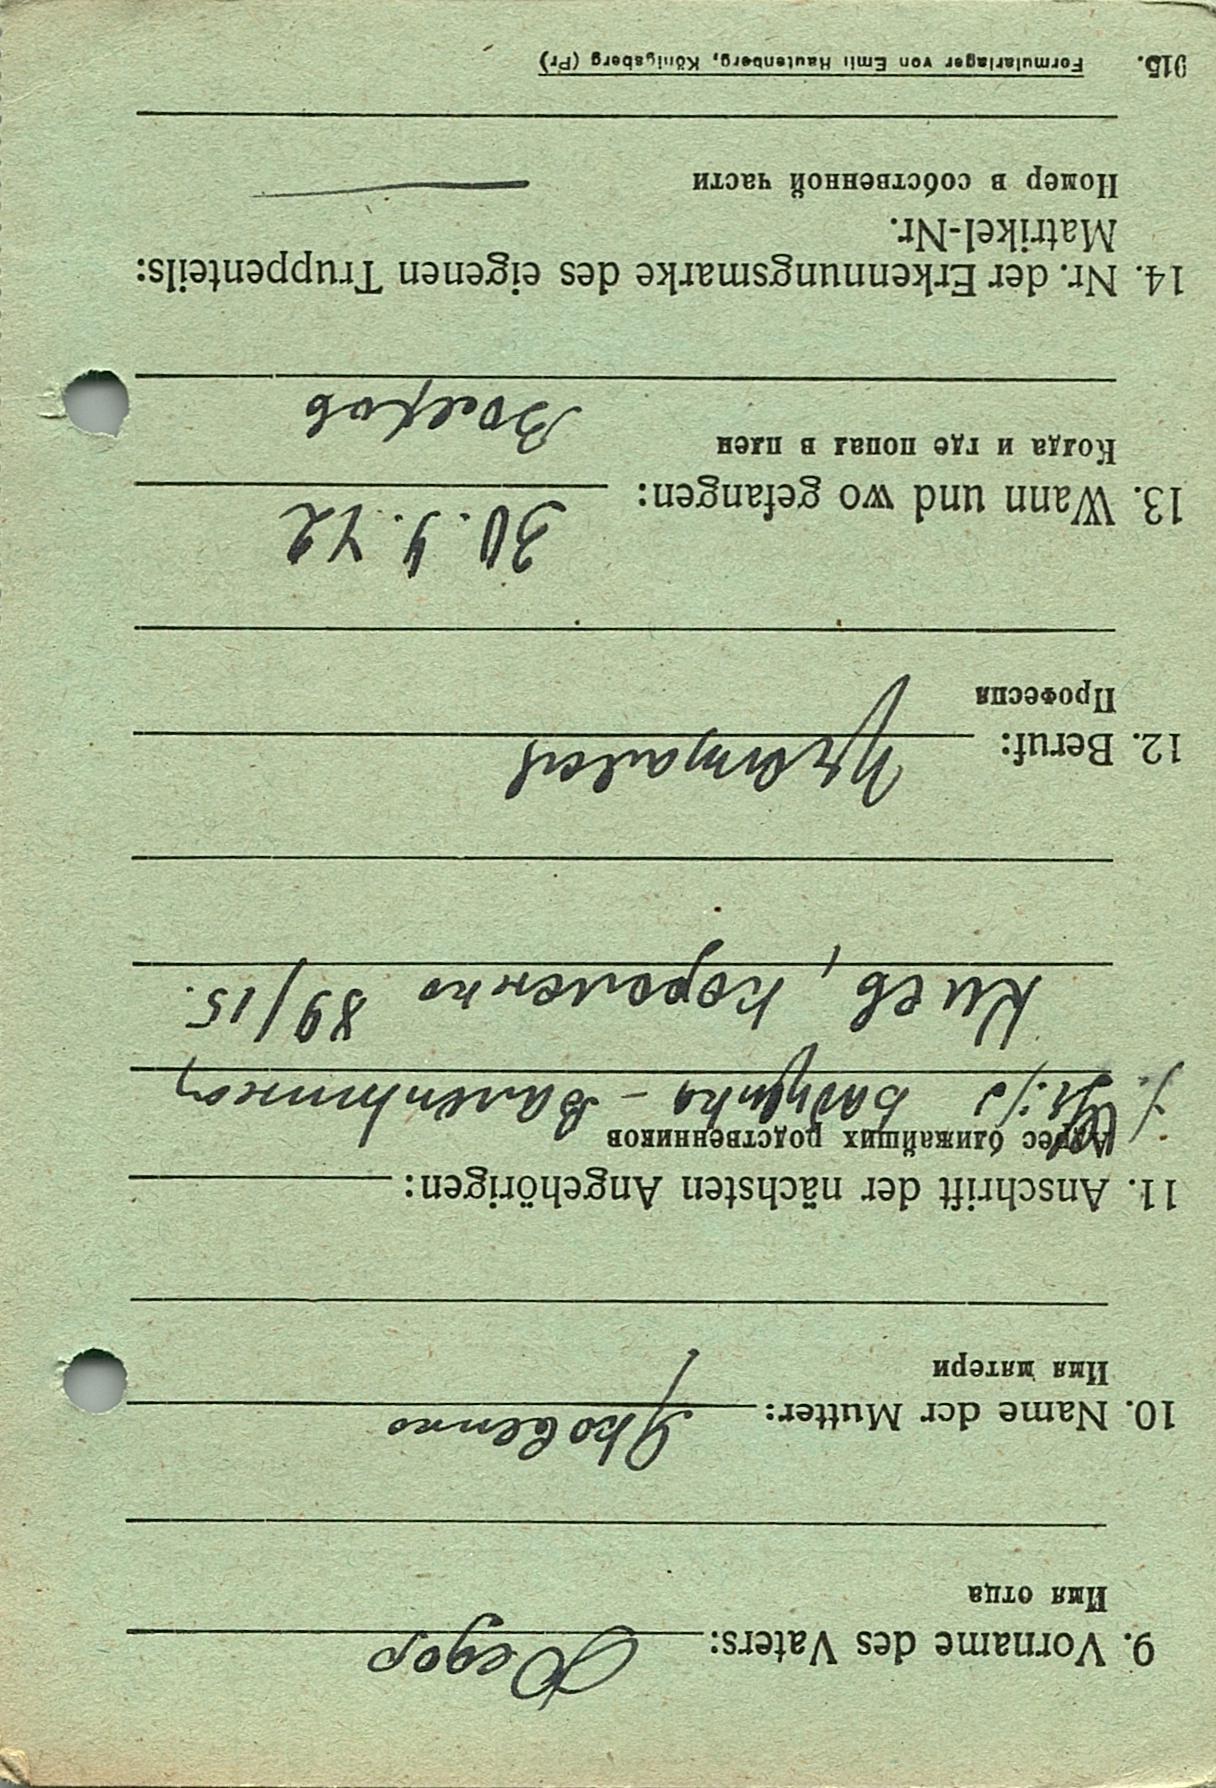 9. Vorname des Vaters: Федор
Имя отца
10. Name der Mutter: Яковенко
Имя матери
11. Anschrift der nächsten Angehörigen:
Адрес ближайших родственников
Валентина
Киев, Короленко 89/15.
12. Beruf:
Професия
13. Wann und wo gefangen: 30.9.42
Козда и где попал в плен
14. Nr. der Erkennungsmarke des eigenen Truppenteils:
Matrikel-Nr.
Номер в собственной части
915. Formularlager von Emil Rautenberg, Königsberg (Pr)